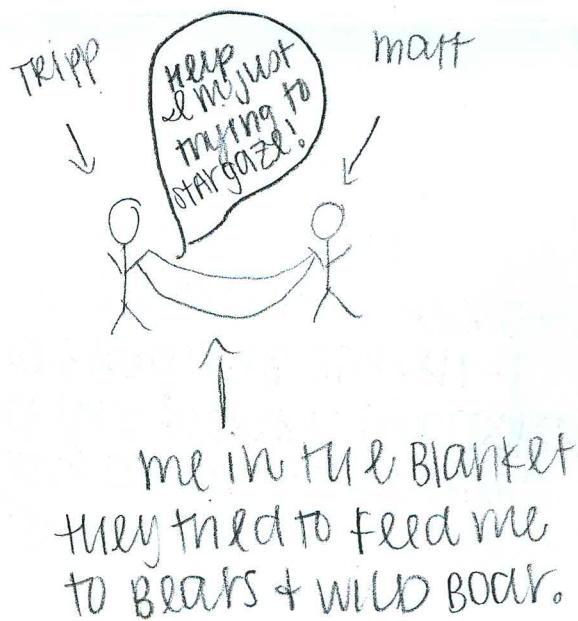 TRIPP
Help
I'm just
trying to
stargaze!
matt
me in the Blanket
they tried to feed me
to Bears + wild Boar.